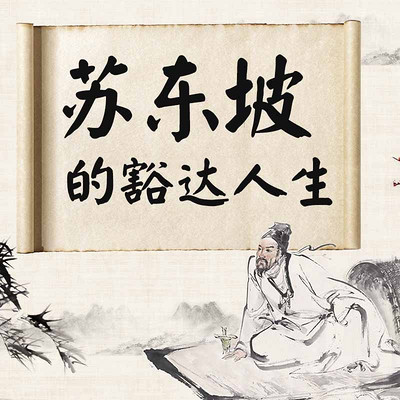 苏东坡
的豁达人生